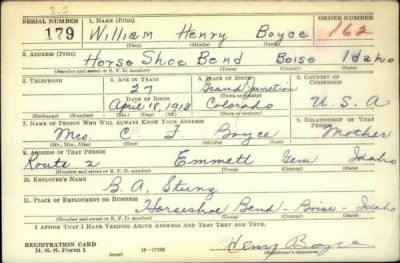 S-3
SERIAL NUMBER 1. NAME (Print) ORDER NUMBER
179 William Henry Boyce 162
(First) (Middle) (Last)
2. ADDRESS (Print)
Horse Shoe Bend Boise Idaho
(Number and street or R. F. D. number) (Town) (County) (State)
3. TELEPHONE 4. AGE IN YEARS 5. PLACE OF BIRTH 6. COUNTRY OF CITIZENSHIP
27 Grand Junction
(Town or county)
DATE OF BIRTH
April 18, 1913 Colorado U. S. A
(Exchange) (Number) (Mo.) (Day) (Yr.) (State or country)
7. NAME OF PERSON WHO WILL ALWAYS KNOW YOUR ADDRESS 8. RELATIONSHIP OF THAT PERSON
Mrs. C F Boyce Mother
(Mr., Mrs., Miss) (First) (Middle) (Last)
9. ADDRESS OF THAT PERSON
Route 2 Emmett Gem Idaho
(Number and street or R. F. D. number) (Town) (County) (State)
10. EMPLOYER'S NAME
B. A. Stunz
11. PLACE OF EMPLOYMENT OR BUSINESS
Horseshoe Bend - Boise - Idaho
(Number and street or R. F. D. number) (Town) (County) (State)
I AFFIRM THAT I HAVE VERIFIED ABOVE ANSWERS AND THAT THEY ARE TRUE.
REGISTRATION CARD
D. S. S. Form 1 (over) 16—17105 Henry Boyce
(Registrant's signature)